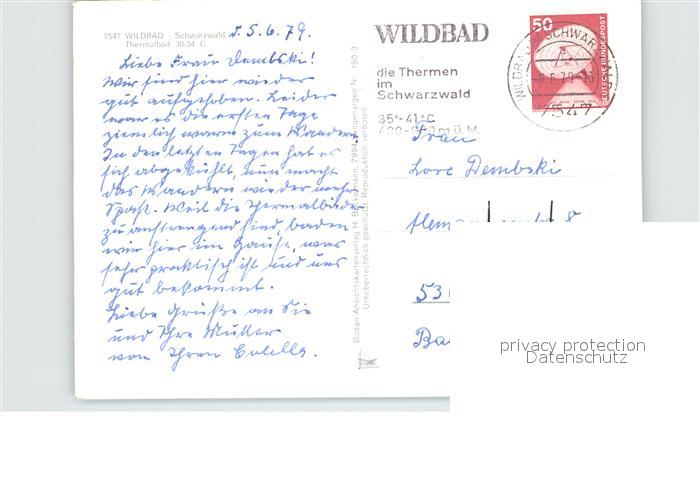 7547 WILDBAD - Schwarzwald
Thermalbad 30-34°C
d. 5.6.79.
Liebe Frau Dembski!
Wir sind hier wieder
gut aufgehoben. Leider
war es die ersten Tage
ziemlich warm zum Wandern.
In den letzten Tagen hat es
sich abgekühlt, nun macht
das Wandern wieder mehr
Spaß. Weil die Thermalbäder
zu anstrengend sind, baden
wir hier im Hause, was
sehr praktisch ist und uns
gut bekommt.
Liebe Grüße an Sie
und Ihre Mutter
von Ihren
Bodan-Ansichtskartenverlag H. Beckmann, 7994 Langenargen Nr. 150-2
Urheberrechtlich geschützt. Reproduktion verboten
WILDBAD
die Thermen
im
Schwarzwald
35°-41°C
m ü. M
WILDBAD IM SCHWARZW
7547
50
DEUTSCHE BUNDESPOST
Frau
Lore Dembski
8
53
Ba
privacy protection
Datenschutz